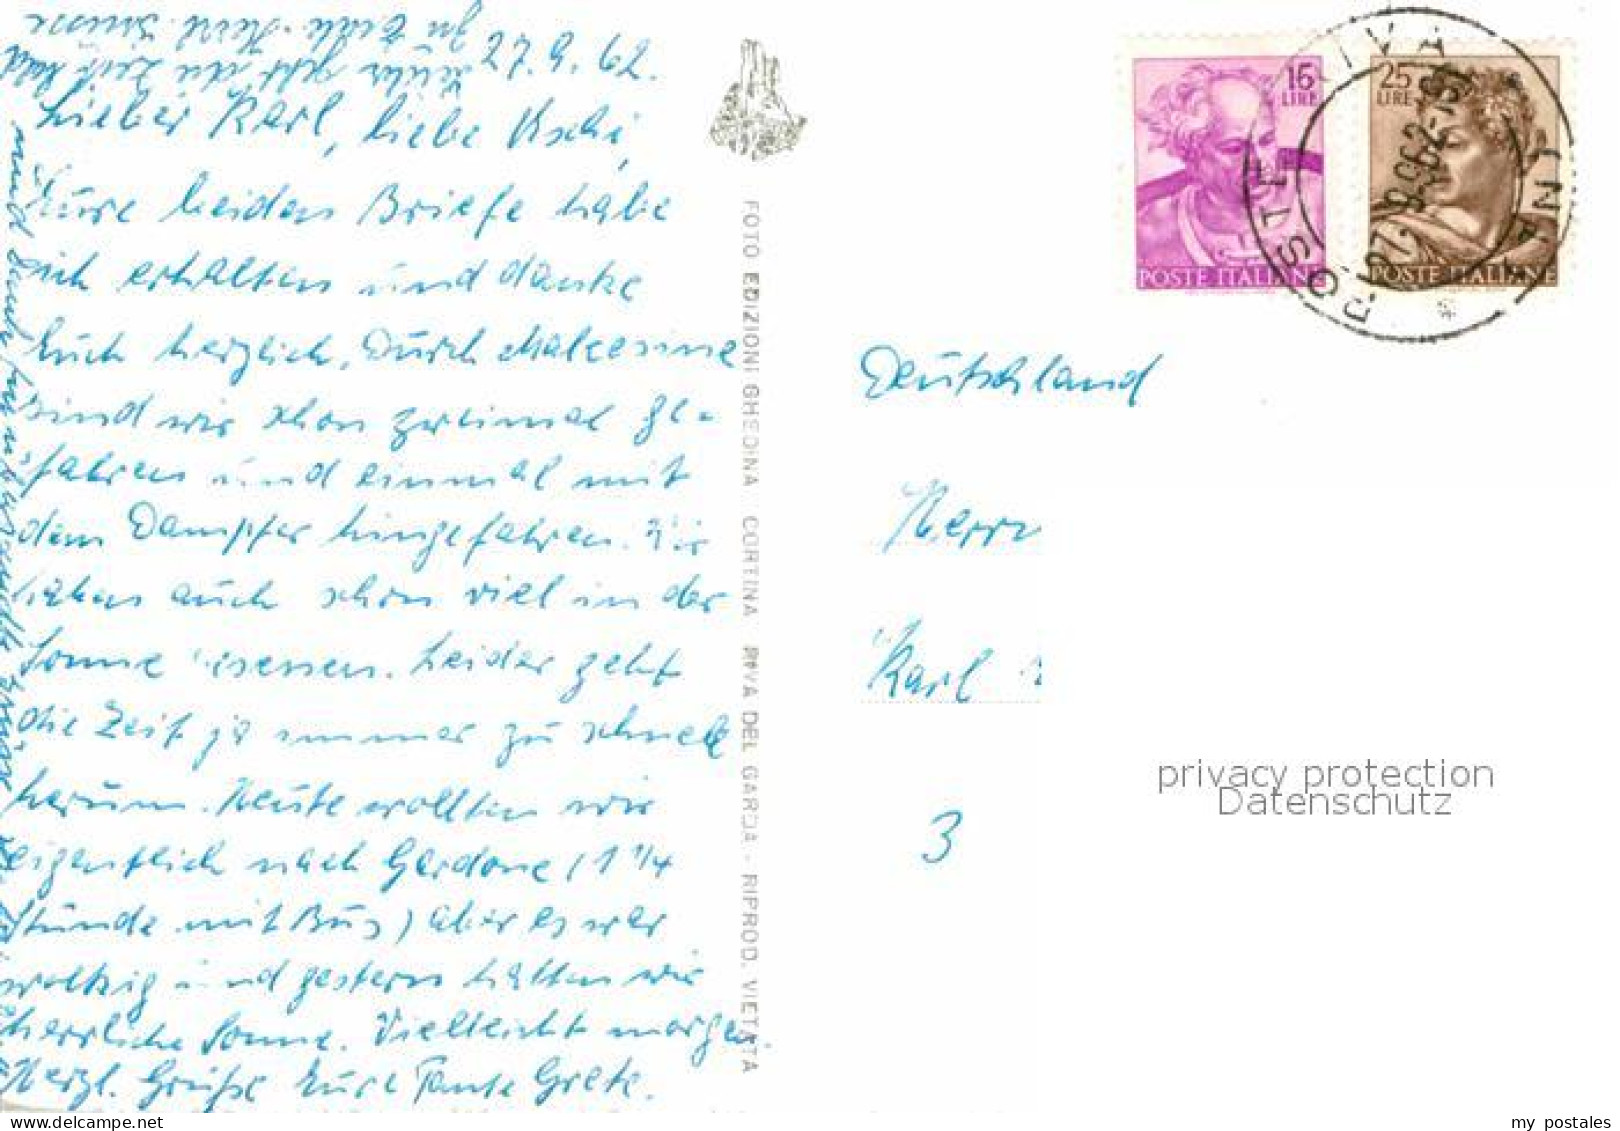 27.9.62.
Lieber Karl, liebe Uschi,
Eure beiden Briefe habe
ich erhalten und danke
Euch herzlich. Durch Malcesine
sind wir schon zweimal ge-
fahren und einmal mit
dem Dampfer hingefahren. Wir
haben auch schon viel in der
Sonne gesessen. Leider geht
die Zeit ja immer zu schnell
herum. Heute wollten wir
eigentlich nach Gardone (1 1/4
Stunde mit Bus) aber es war
wolkig und gestern hatten wir
herrliche Sonne. Vielleicht morgen
Herzl. Grüße Eure Tante Grete.
FOTO EDIZIONI GHEDINA CORTINA RIVA DEL GARDA - RIPROD. VIETATA
15
LIRE
POSTE ITALIANE
25
LIRE
POSTE ITALIANE
27.9.962-19
Deutschland
Herrn
Karl
3
privacy protection
Datenschutz
my postales